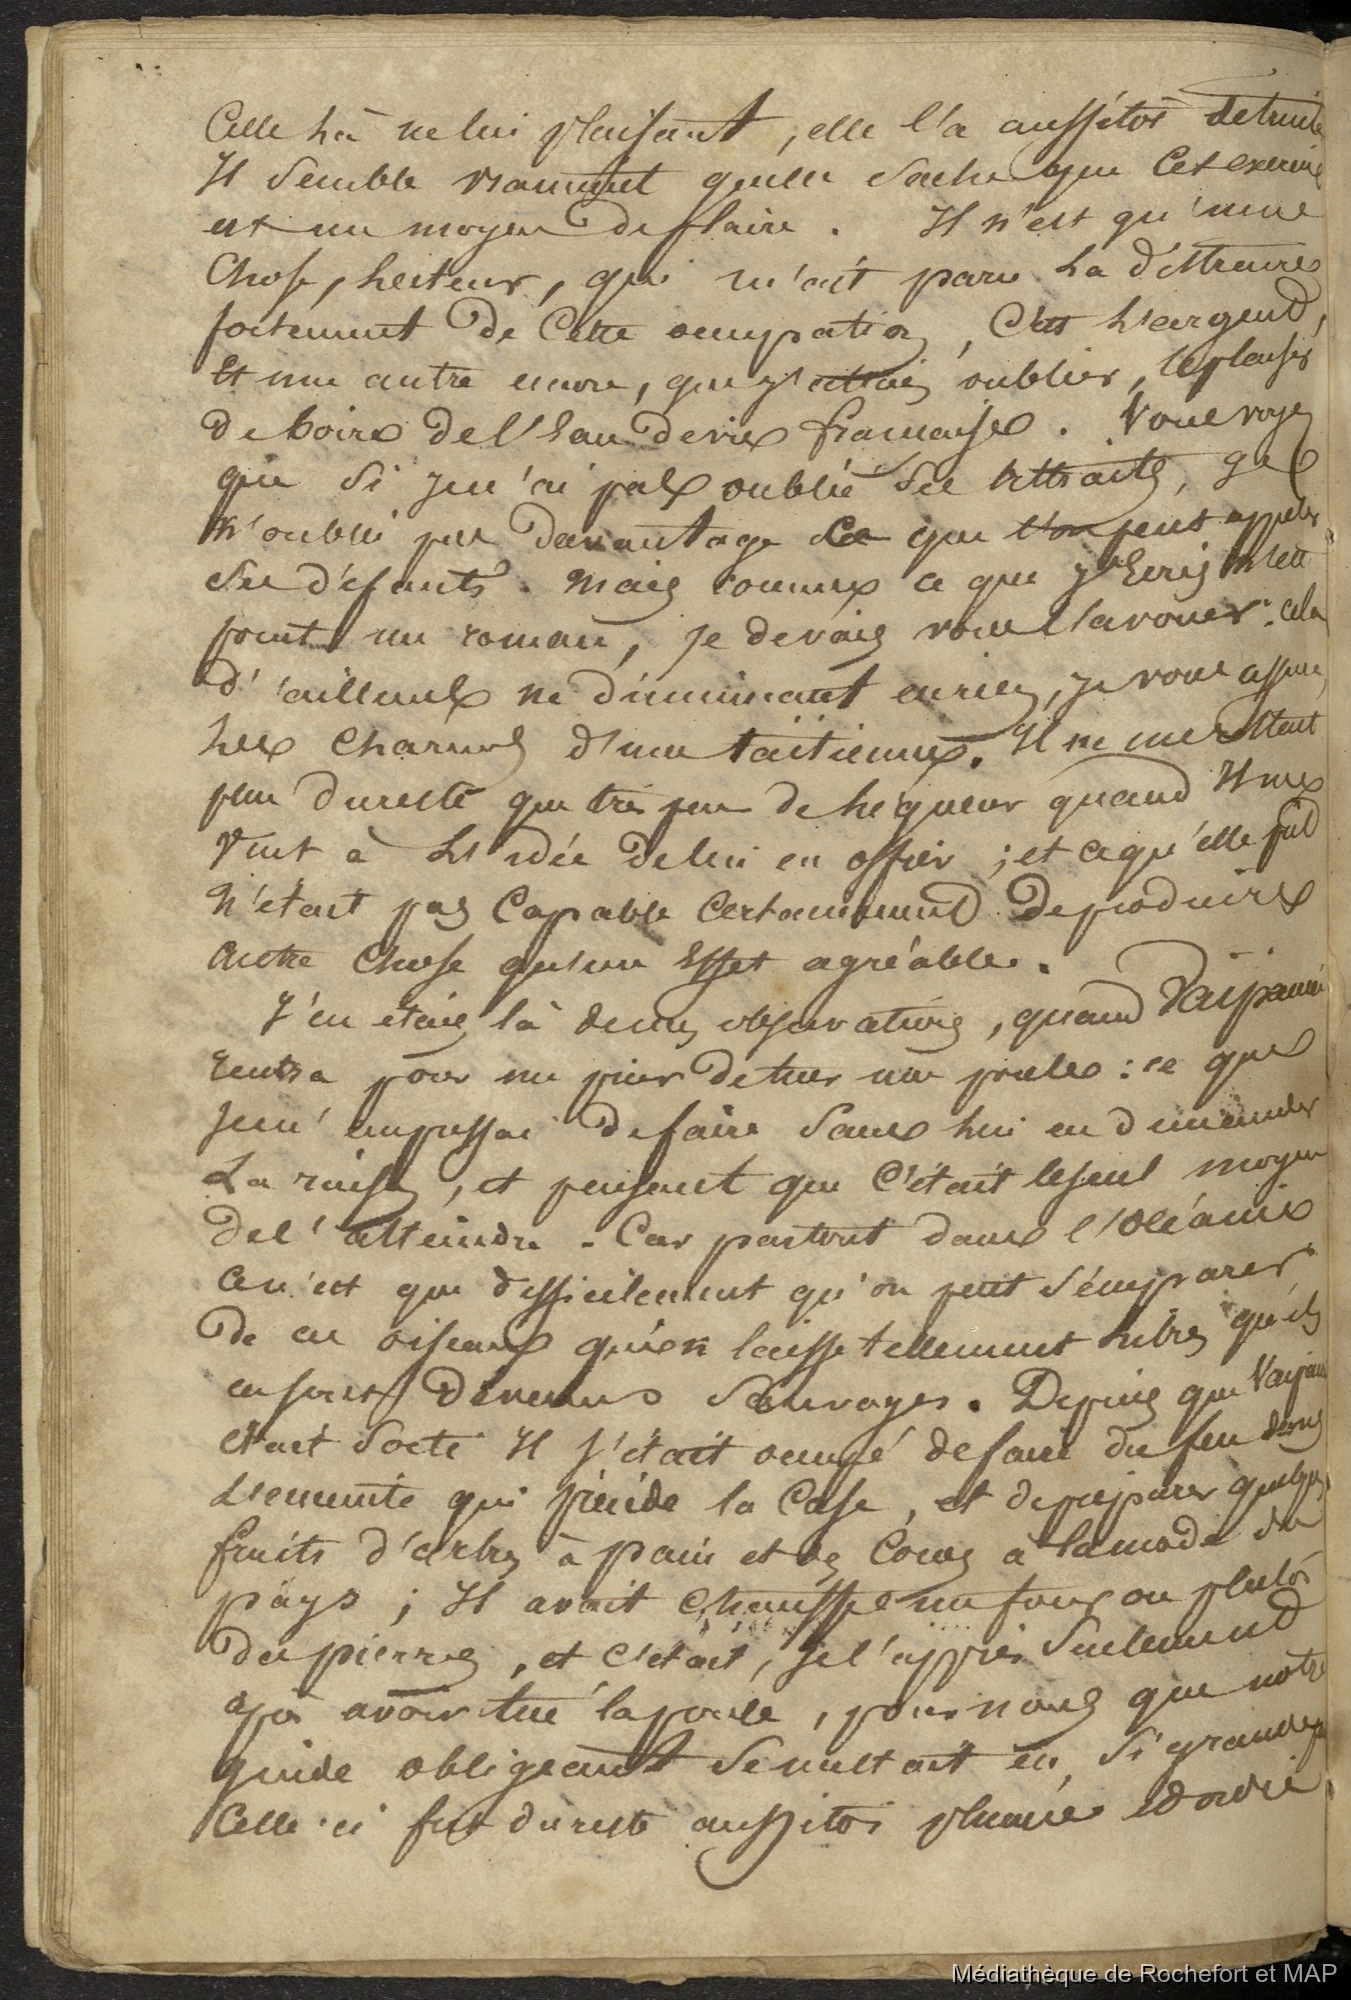 Celle là ne lui plaisant, elle l'a aussitôt détruite
Il semble vraiment qu'elle sache que cet exercice
est un moyen de plaire. Il n'est qu'une
Chose, lecteur, qui m'ait paru la déstraire
fortement de Cette occupation, C'est l'argent,
Et une autre encore, que j'allais oublier, le plaisir
de boire de l'Eau de vie française. Vous voyez
que si je n'ai pas oublié ses attraits, je
n'oubli pas davantage ce que l'on peut appeler
ses défauts. Mais comme ce que j'Ecris n'est
point un roman, je devais vous l'avouer: cela
d'ailleurs ne diminuant en rien, je vous assure,
les charmes d'une taïtienne. Il ne me restait
plus du reste que très peu de liqueur quand Il me
Vint à L'idée de lui en offrir; et ce qu'elle prit
N'était pas Capable Certainement de produire
autre chose qu'un Effet agréable.
J'en étais là de mes observations, quand
Rentra pour me prier de tuer une poule: ce que
je m'empressai de faire sans lui en demander
La raison, et pensant que C'était le seul moyen
de l'atteindre. Car partout dans l'Océanie
ce n'est que difficilement qu'on peut s'emparer
de ces oiseaux qu'on laisse tellement libres qu'ils
en sont devenus sauvages. Depuis que
était sorti Il s'était occupé de faire du feu dans
L'enceinte qui la Case, et de préparer quelques
fruits d'arbres à pain et des Cocos à la mode du
pays; Il avait chauffé un four ou plutôt
des pierres, et c'était, je l'appris seulement
après avoir tué la poule, pour nous que notre
guide obligeant se mettait en si grands
Celle-ci fut du reste aussitôt plumée
Médiathèque de Rochefort et MAP